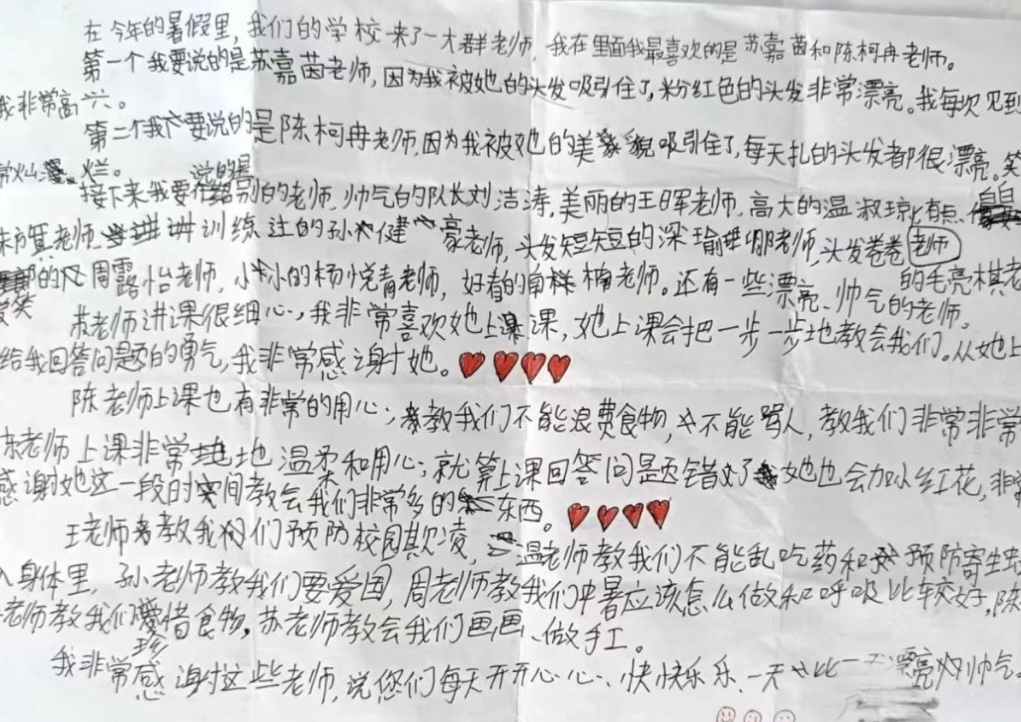 在今年的暑假里，我们的学校来了一大群老师，我在里面我最喜欢的是苏嘉茵和陈柯冉老师。
第一个我要说的是苏嘉茵老师，因为我被她的头发吸引住了，粉红色的头发非常漂亮。我每次见到
我非常高兴。
第二个我要说的是陈柯冉老师，因为我被她的美貌吸引住了，每天扎的头发都很漂亮。笑
常灿烂。
接下来我要说的是别的老师，帅气的队长刘洁涛，美丽的王晖老师，高大的温淑琼，有点
老师，讲训练过的孙健豪老师，头发短短的深瑜珊老师，头发卷卷老师
的周露怡老师，小小的杨悦青老师，好看的楠老师。还有一些漂亮、帅气的老师。
的毛亮棋老
苏老师讲课很细心，我非常喜欢她上课，她上课会把一步一步地教会我们。从她上
给我回答问题的勇气，我非常感谢她。
陈老师上课也有非常的用心，教我们不能浪费食物，不能骂人，教我们非常非常
陈老师上课非常地温柔和用心；就算上课回答问题错了她也会加小红花，非常
感谢她这一段时间教会我们非常多的东西。
王老师教我们预防校园欺凌，温老师教我们不能乱吃药和预防寄生虫
入身体里，孙老师教我们要爱国，周老师教我们中暑应该怎么做和呼吸比较好，陈
老师教我们珍惜食物，苏老师教会我们画画、做手工。
我非常感谢这些老师，说您们每天开开心心、快快乐乐、一天比一天漂亮和帅气。